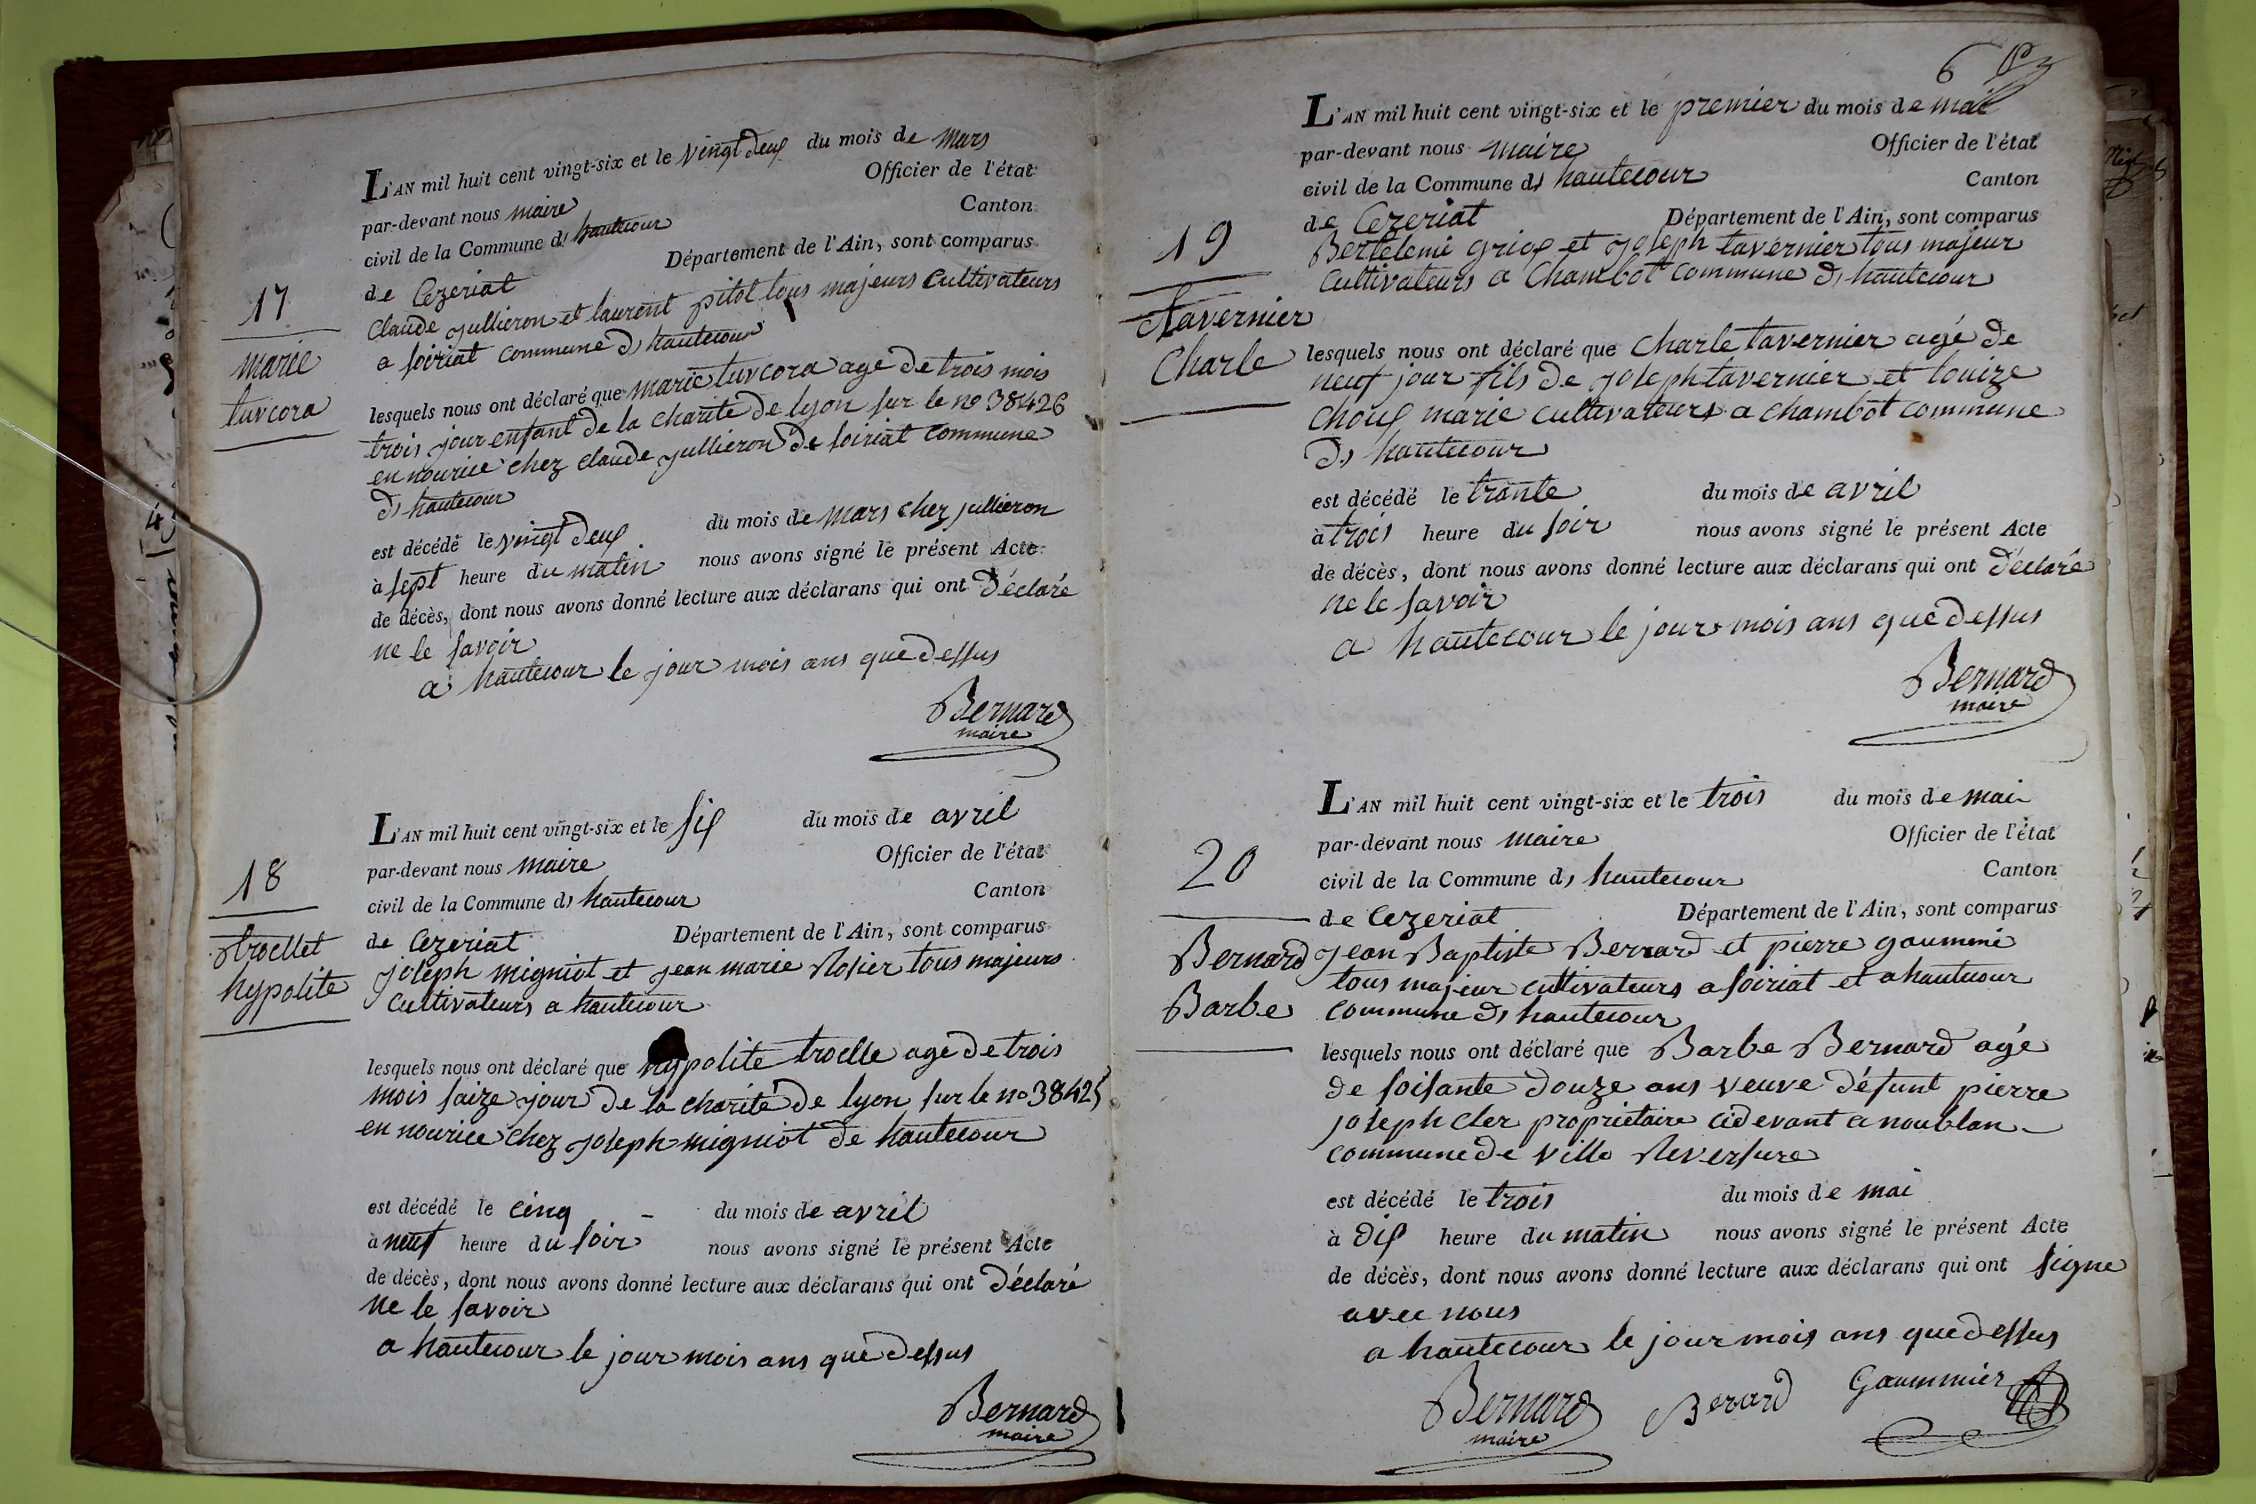 17
marie
tuvcora
L'AN mil huit cent vingt-six et le vingt deux du mois de mars
par-devant nous maire Officier de l'état
civil de la Commune d, hautecour Canton
de Cezeriat Département de l'Ain, sont comparus
Claude jullieron et laurent pitot tous majeurs cultivateurs
a soiriat commune d, hautecour
lesquels nous ont déclaré que marie tuvcora age de trois mois
trois jour enfant de la charite de lyon sur le no 38426
en nourice chez claude jullieron de soiriat commune
d, hautecour
est décédé le vingt deux du mois de mars chez jullieron
à sept heure du matin nous avons signé le présent Acte
de décès, dont nous avons donné lecture aux déclarans qui ont déclaré
ne le savoir
a hautecour le jour mois ans que dessus
Bernard
maire
18
troellet
hypolite
L'AN mil huit cent vingt-six et le six du mois de avril
par-devant nous maire Officier de l'état
civil de la Commune d, hautecour Canton
de Cezeriat Département de l'Ain, sont comparus
joseph migniot et jean marie Rosier tous majeurs
cultivateurs a hautecour
lesquels nous ont déclaré que hypolite troelle age de trois
mois saize jour de la charité de lyon sur le no 38425
en nourice chez joseph migniot de hautecour
est décédé le cinq - du mois de avril
à neuf heure du soir nous avons signé le présent Acte
de décès, dont nous avons donné lecture aux déclarans qui ont déclaré
ne le savoir
a hautecour le jour mois ans que dessus
Bernard
maire
6
19
tavernier
Charle
L'AN mil huit cent vingt-six et le premier du mois de mai
par-devant nous maire Officier de l'état
civil de la Commune d, hautecour Canton
de Cezeriat Département de l'Ain, sont comparus
Bertelemi griox et joseph tavernier tous majeur
cultivateurs a Chambot commune d, hautecour
lesquels nous ont déclaré que Charle tavernier agé de
neuf jour fils de joseph tavernier et louize
choux marie cultivateurs a chambot commune
d, hautecour
est décédé le trante du mois de avril
à trois heure du soir nous avons signé le présent Acte
de décès, dont nous avons donné lecture aux déclarans qui ont déclaré
ne le savoir
a hautecour le jour mois ans que dessus
Bernard
maire
20
Bernard
Barbe
L'AN mil huit cent vingt-six et le trois du mois de mai
par-devant nous maire Officier de l'état
civil de la Commune d, hautecour Canton
de Cezeriat Département de l'Ain, sont comparus
jean Baptiste Berrard et pierre goumeni
tous majeur cultivateurs a soiriat et a hautecour
commune d, hautecour
lesquels nous ont déclaré que Barbe Bernard agé
de soisante douze ans veuve défunt pierre
joseph cler propriétaire cidevant a noublan
commune de ville Reversure
est décédé le trois du mois de mai
à dix heure du matin nous avons signé le présent Acte
de décès, dont nous avons donné lecture aux déclarans qui ont signe
avec nous
a hautecour le jour mois ans que dessus
Bernard Berard Goummier
maire